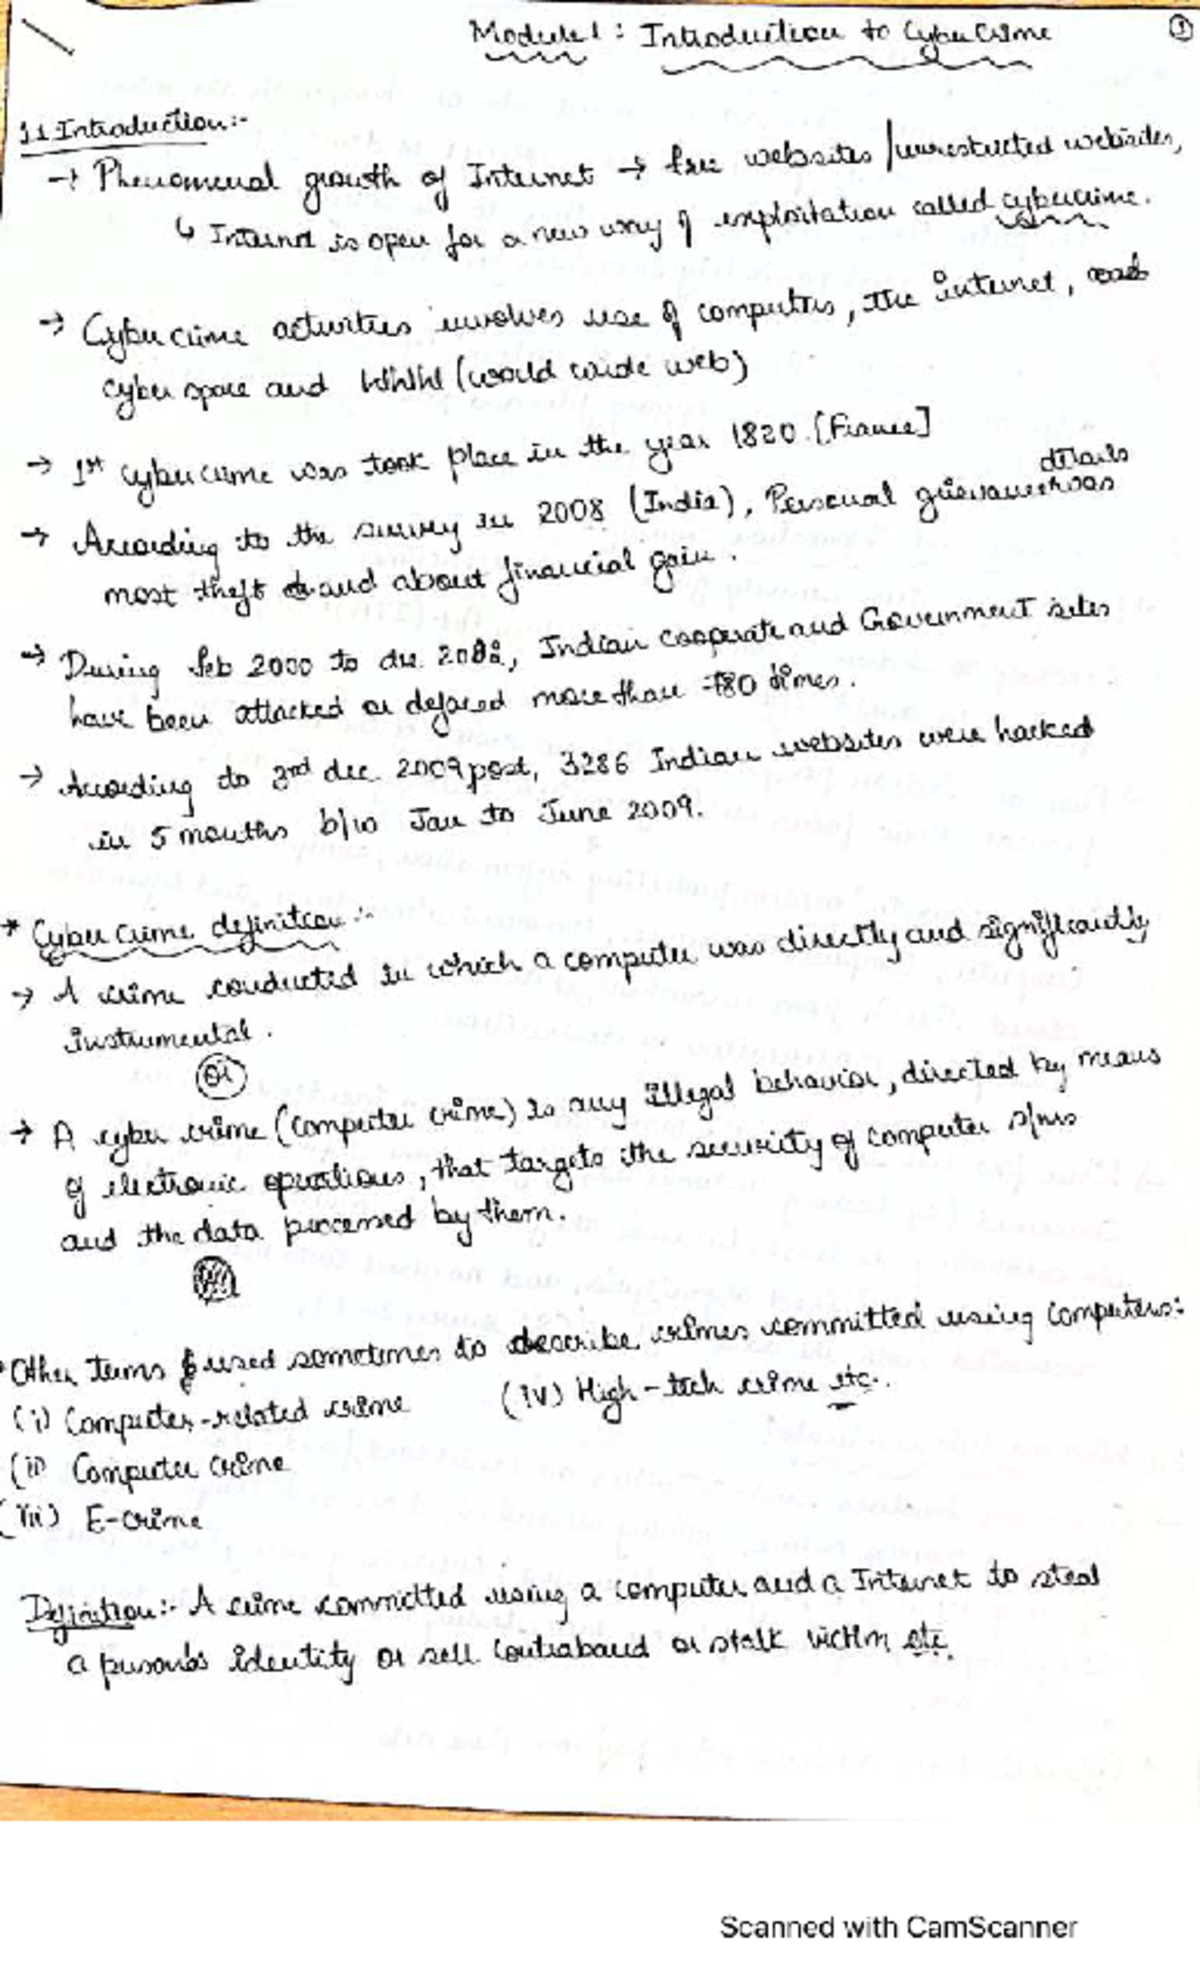 Module 1 : Introduction to Cyber Crime ①
1.1 Introduction:-
→ Phenomenal growth of Internet → free websites / unrestricted websites,
↳ Internet is open for a new way of exploitation called cybercrime.
→ Cyber crime activities involves use of computers, the internet,
cyber space and WWW (world wide web)
→ 1st cyber crime was took place in the year 1820. [France]
→ According to the survey in 2008 (India), Personal grievances details was
most theft and about financial gain.
→ During feb 2000 to dec. 2002, Indian cooperate and Government sites
have been attacked or defaced more than 780 times.
→ According to 3rd dec 2009 post, 3286 Indian websites were hacked
in 5 months b/w Jan to June 2009.
* Cyber Crime definition :-
→ A crime conducted in which a computer was directly and significantly
instrumental.
(or)
→ A cyber crime (computer crime) is any illegal behavior, directed by means
of electronic operations, that targets the security of computer s/ms
and the data processed by them.
* Other terms used sometimes to describe crimes committed using computers:-
(i) Computer-related crime (iv) High-tech crime etc..
(ii) Computer crime
(iii) E-crime
Definition:- A crime committed using a computer and a Internet to steal
a person's identity or sell contraband or stalk victim etc.
Scanned with CamScanner